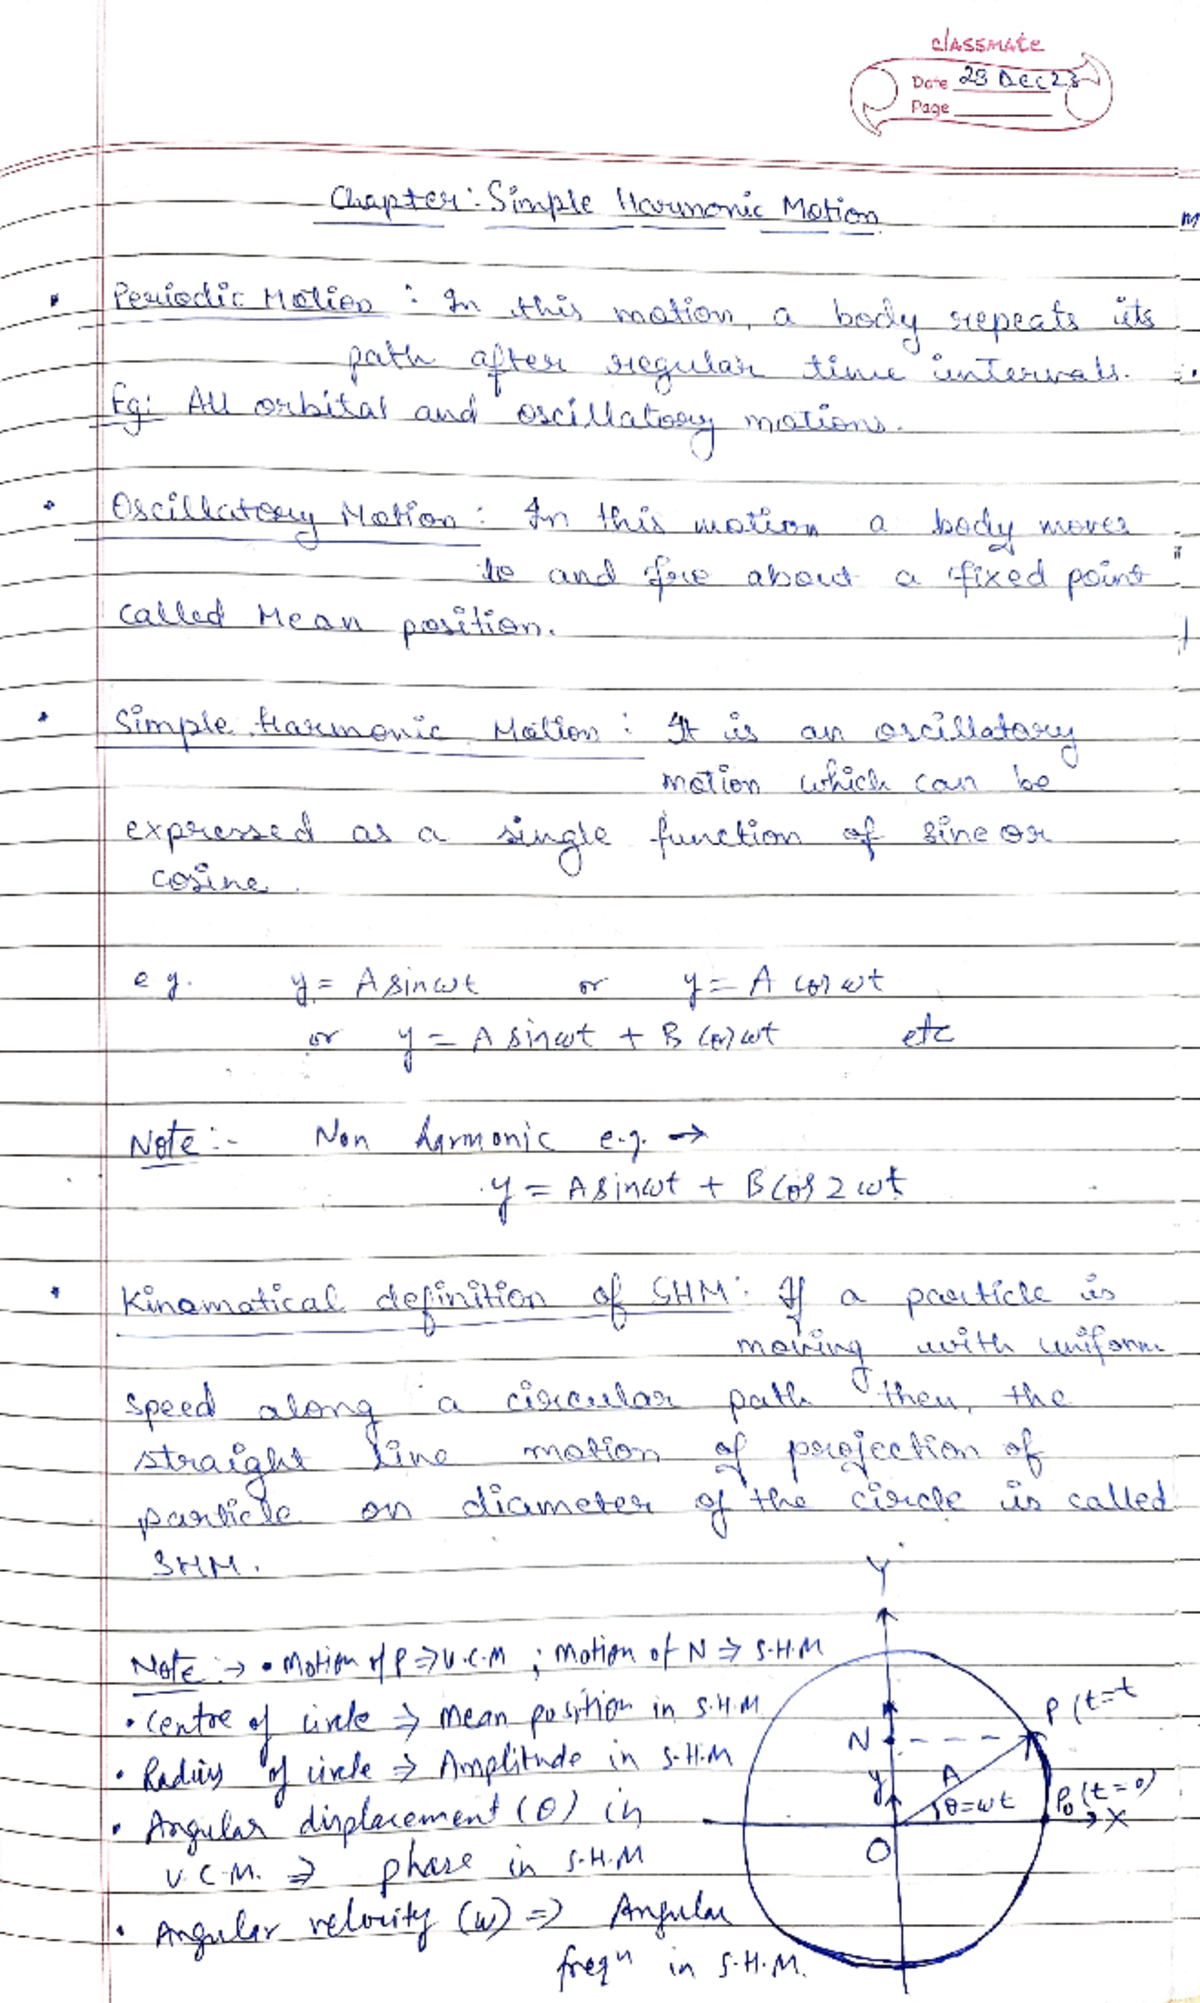 classmate
Date 23 Dec 23
Page
Chapter: Simple Harmonic Motion
• Periodic Motion : In this motion, a body repeats its
path after regular time intervals.
Eg: All orbital and oscillatory motions.
• Oscillatory Motion : In this motion a body moves
to and fro about a fixed point
called Mean position.
• Simple Harmonic Motion : It is an oscillatory
motion which can be
expressed as a single function of sine or
cosine.
e g. y = A sinωt or y = A cos ωt
or y = A sinωt + B cos ωt etc
Note :- Non harmonic e.g. →
y = A sinωt + B cos 2 ωt
• Kinamatical definition of SHM : If a particle is
moving with uniform
speed along a circular path then, the
straight line motion of projection of
particle on diameter of the circle is called
SHM.
Note :→ • Motion of P ⇒ U.C.M ; Motion of N ⇒ S.H.M
• Centre of circle ⇒ Mean position in S.H.M
• Radius of circle ⇒ Amplitude in S.H.M
• Angular displacement (θ) in
U.C.M. ⇒ phase in S.H.M
• Angular velocity (ω) ⇒ Angular
freqⁿ in S.H.M.
Y
P (t=t
N
A
y
θ=ωt
P₀ (t=0)
X
O